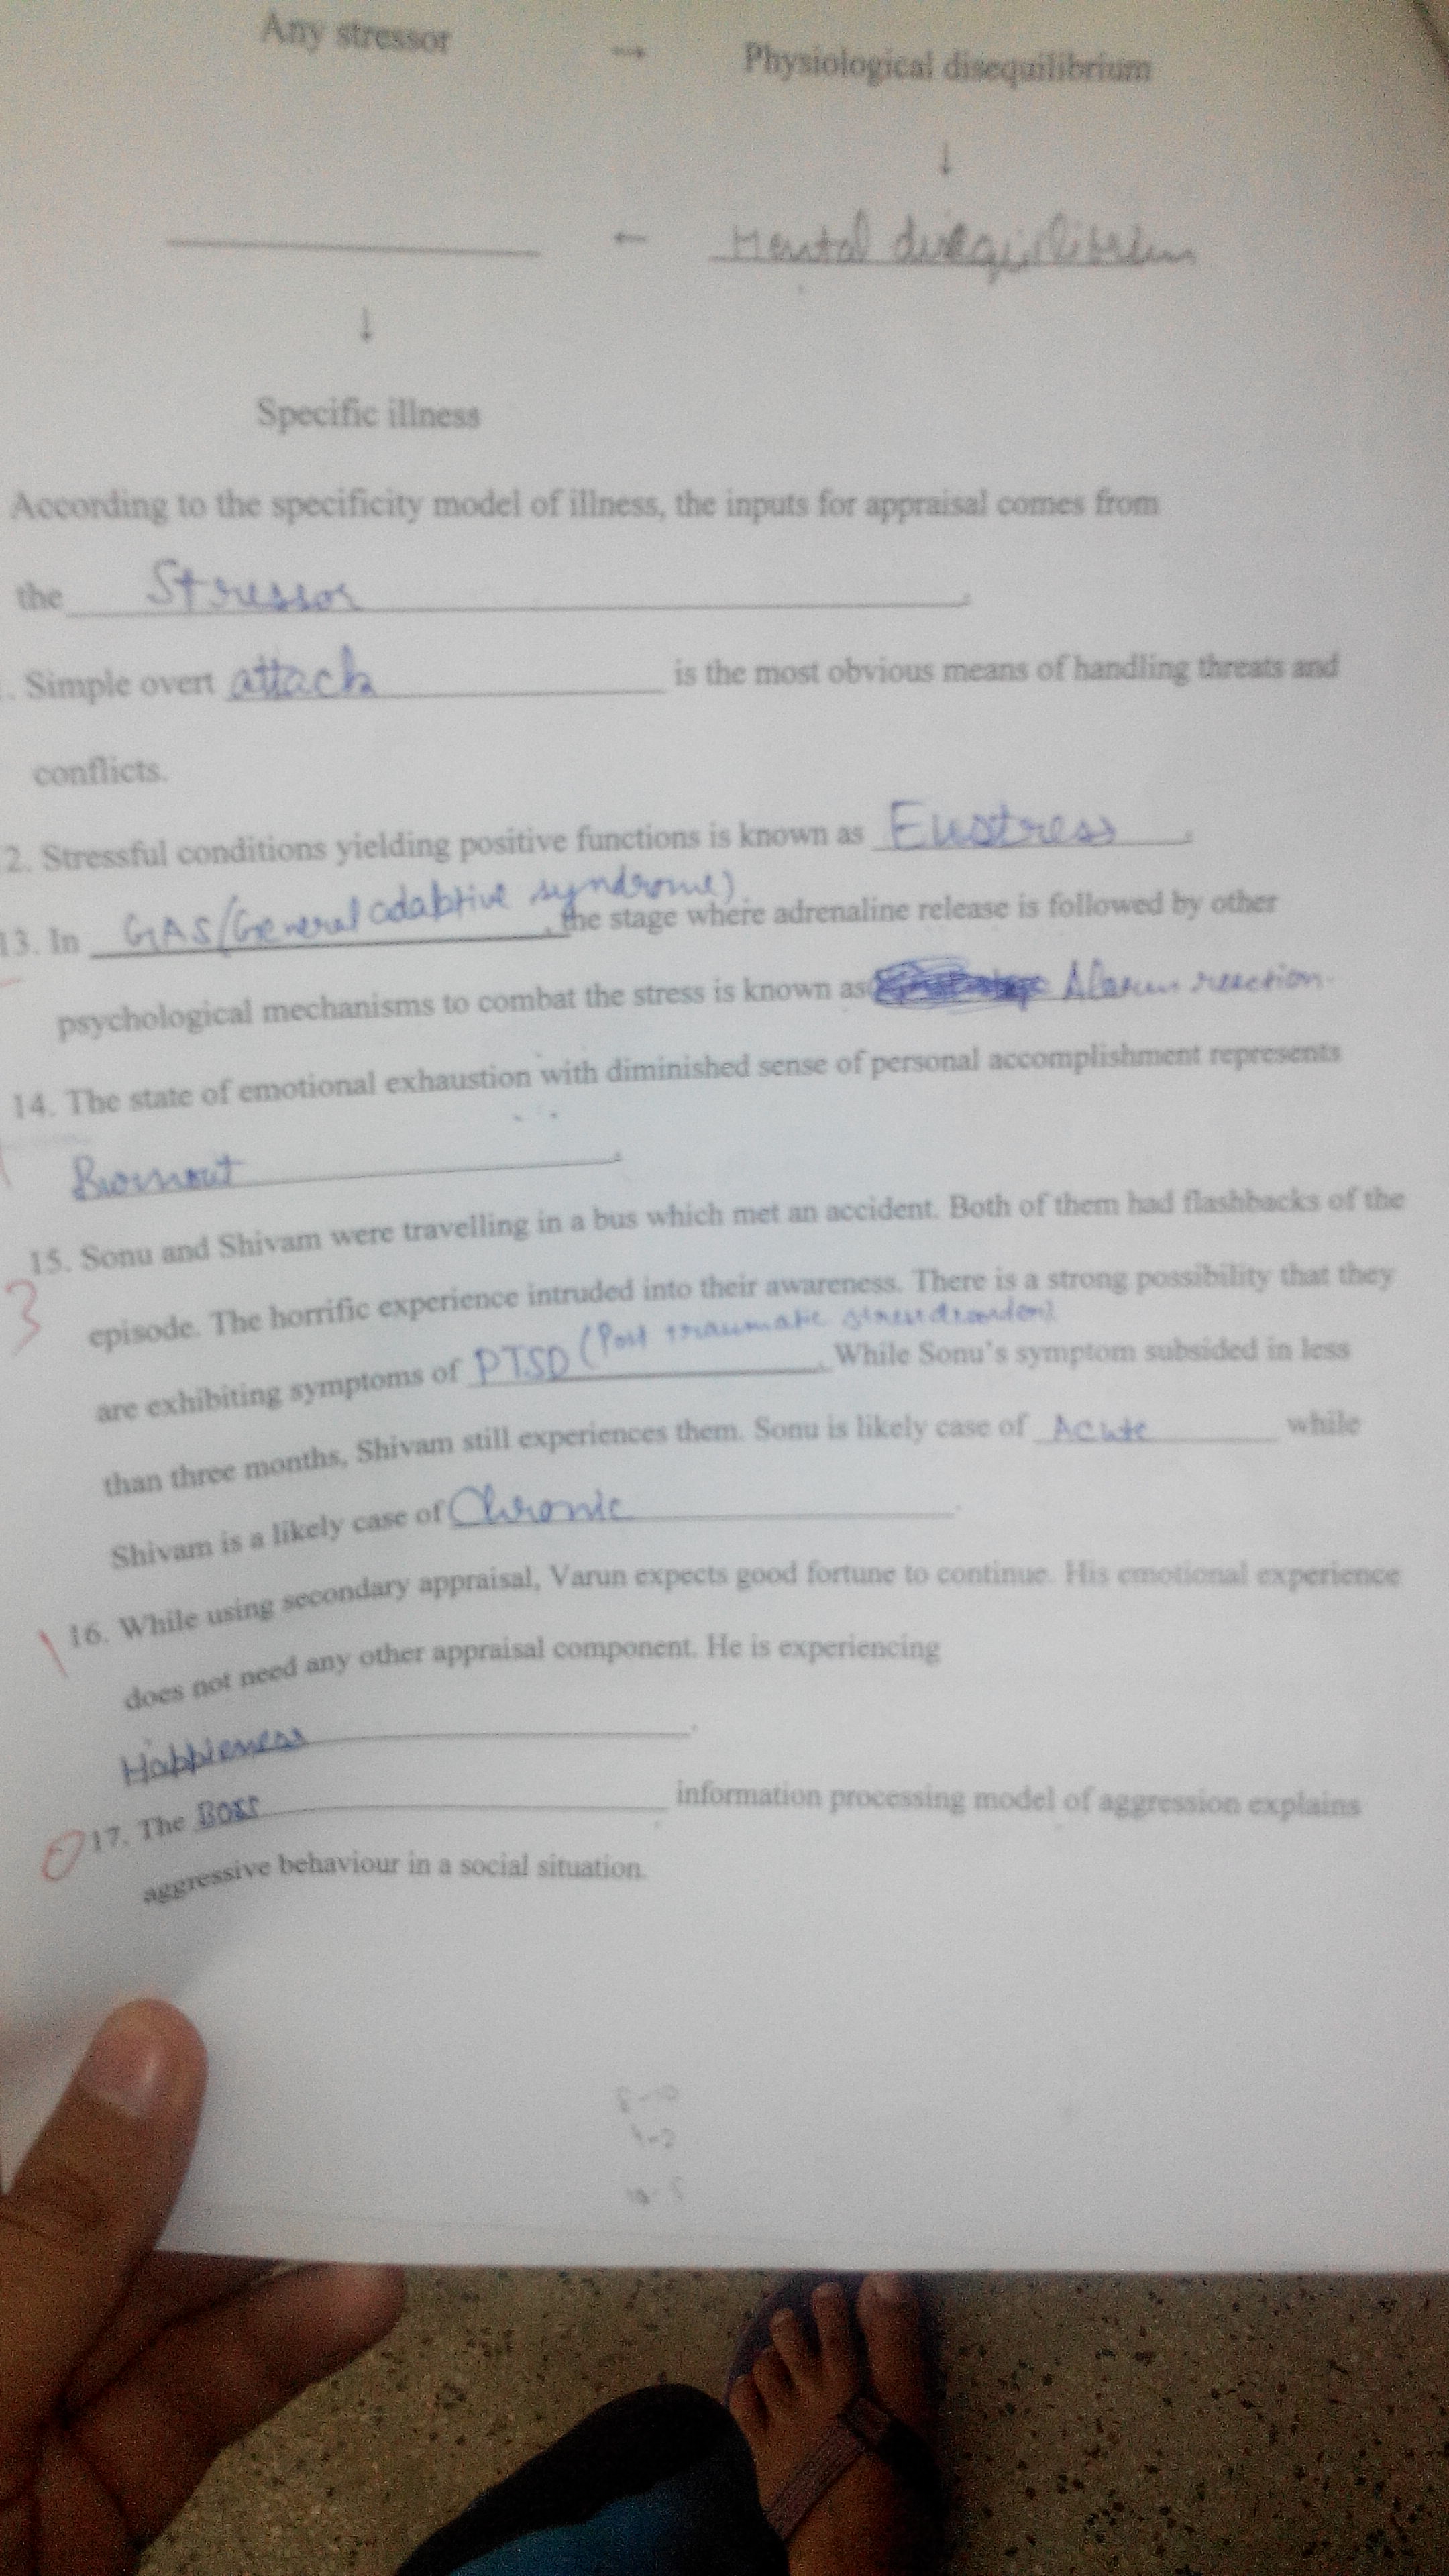 Any stressor → Physiological disequilibrium
↓
← Mental disequilibrium
↓
Specific illness
According to the specificity model of illness, the inputs for appraisal comes from
the Stressor.
. Simple overt attack is the most obvious means of handling threats and
conflicts.
2. Stressful conditions yielding positive functions is known as Eustress.
13. In GAS (General adaptive syndrome), the stage where adrenaline release is followed by other
psychological mechanisms to combat the stress is known as Alarm reaction.
14. The state of emotional exhaustion with diminished sense of personal accomplishment represents
Burnout.
15. Sonu and Shivam were travelling in a bus which met an accident. Both of them had flashbacks of the
3
episode. The horrific experience intruded into their awareness. There is a strong possibility that they
are exhibiting symptoms of PTSD (Post traumatic). While Sonu's symptom subsided in less
than three months, Shivam still experiences them. Sonu is likely case of Acute while
Shivam is a likely case of Chronic.
1 16. While using secondary appraisal, Varun expects good fortune to continue. His emotional experience
does not need any other appraisal component. He is experiencing
Happieness.
0 17. The Boss information processing model of aggression explains
aggressive behaviour in a social situation.